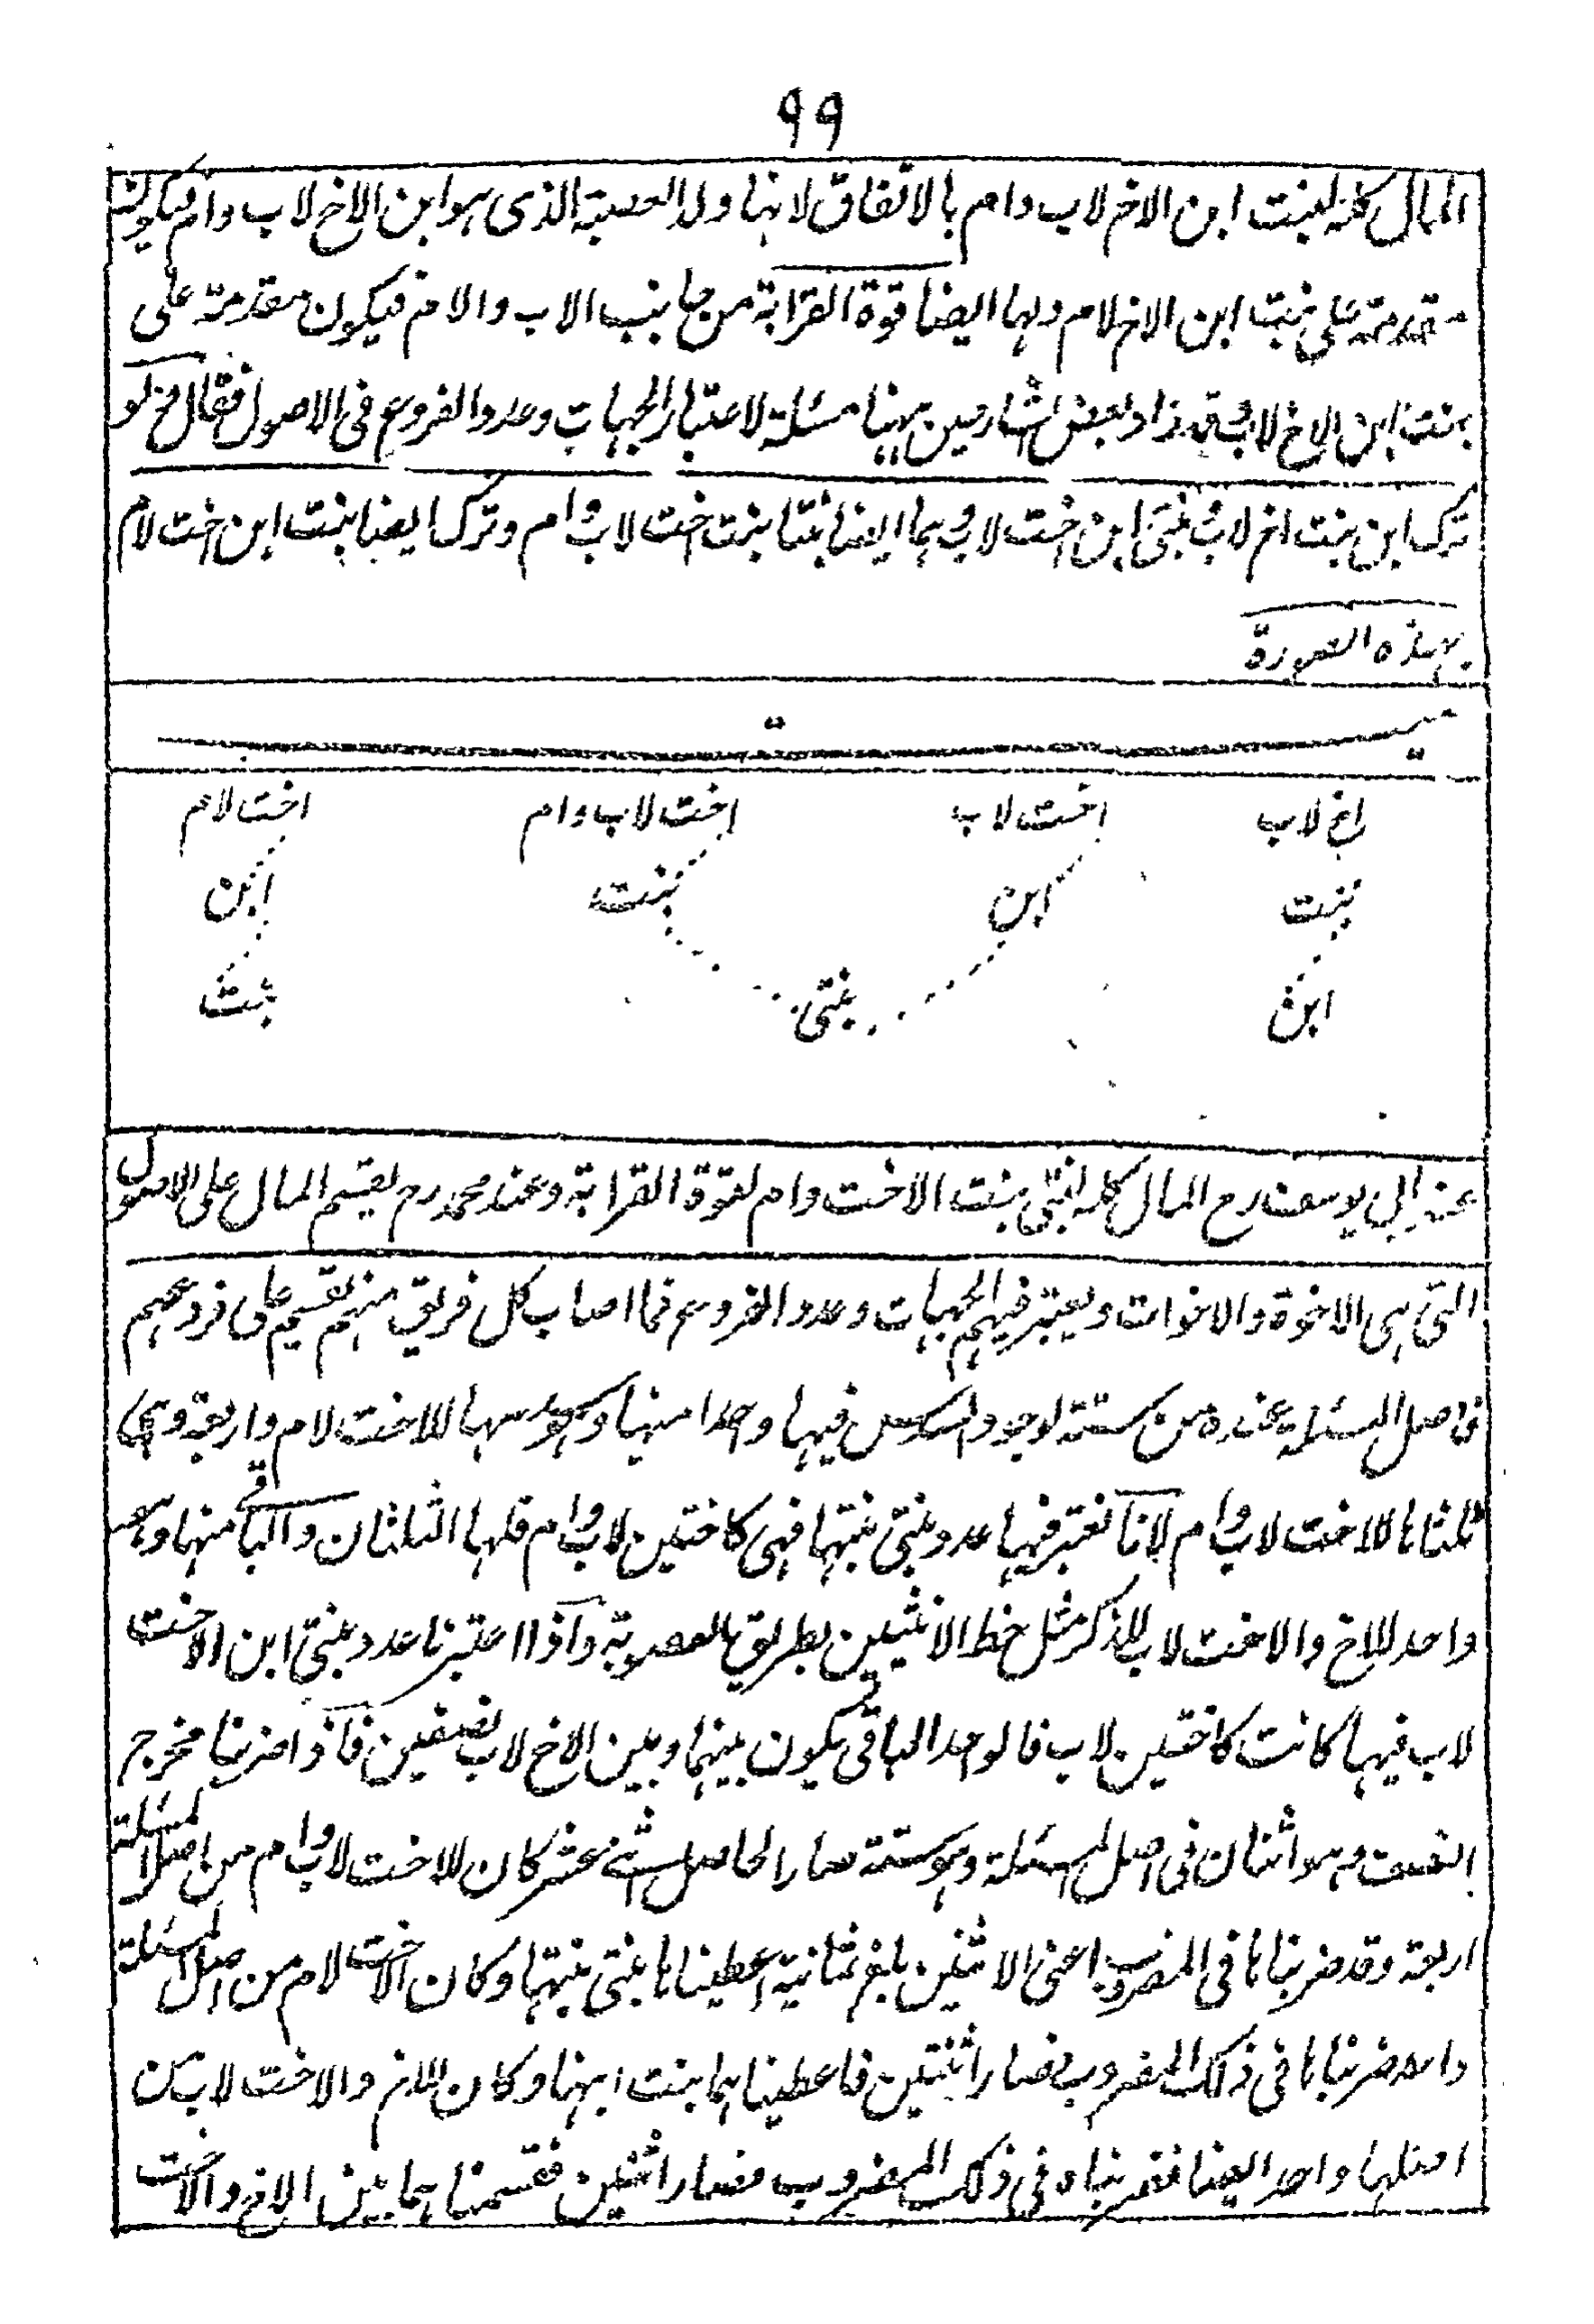 ٩٩
المال كله لبنت ابن الاخ لاب وام بالاتفاق لانها ولد العصبة الذى هو ابن الاخ لاب وام فيكون
مقدمة على بنت ابن الاخ لام ولها ايضا قوة القرابة من جانب الاب والام فيكون مقدمة على
بنت ابن الاخ لاب وقد زاد بعض الشارحين ههنا مسئلة لاعتبار الجهات وعدد الفروع فى الاصول فقال فح لو
ترك ابن بنت اخ لاب وبنتى ابن اخت لاب وهما ايضا بنتا بنت اخت لاب وام وترك ايضا بنت ابن اخت لام
بهذه الصورة
ميــــــت
اخ لاب اخت لاب اخت لاب وام اخت لام
بنت ابن بنت ابن
ابن بنتى بنت
عند ابى يوسف رح المال كله لبنتى بنت الاخت وام لقوة القرابة وعند محمد رح يقسم المال على الاصول
التى هى الاخوة والاخوات ويعتبر فيهم الجهات وعدد الفروع فما اصاب كل فريق منهم تقسيم على فروعهم
فاصل المسئلة عنده من ستة لوجود السدس فيها واحدا منها وهو سدسها للاخت لام واربعة وهى
ثلثاها للاخت لاب وام لانا نعتبر فيها عدد بنتى بنتها فهى كاختين لاب وام فلها الثلثان والباقى منها وهو
واحد للاخ والاخت لاب للذكر مثل حظ الانثيين بطريق العصوبة واذا اعتبرنا عدد بنتى ابن الاخت
لاب فيها كانت كاختين لاب فالواحد الباقى يكون بينهما وبين الاخ لاب نصفين فاذا ضربنا مخرج
النصف وهو اثنان فى اصل المسئلة وهو ستة صار الحاصل اثنى عشر كان للاخت لاب وام من اصل المسئلة
اربعة وقد ضربناها فى المضروب اعنى الاثنين بلغ ثمانية اعطيناها بنتى بنتها وكان الاخت لام من اصل المسئلة
واحد ضربناها فى ذلك المضروب فصار اثنتين فاعطيناهما بنت ابنها وكان للاخ والاخت لاب من
اصلها واحد ايضا فضربناه فى ذلك المضروب فصار اثنين فقسمناهما بين الاخ والاخت